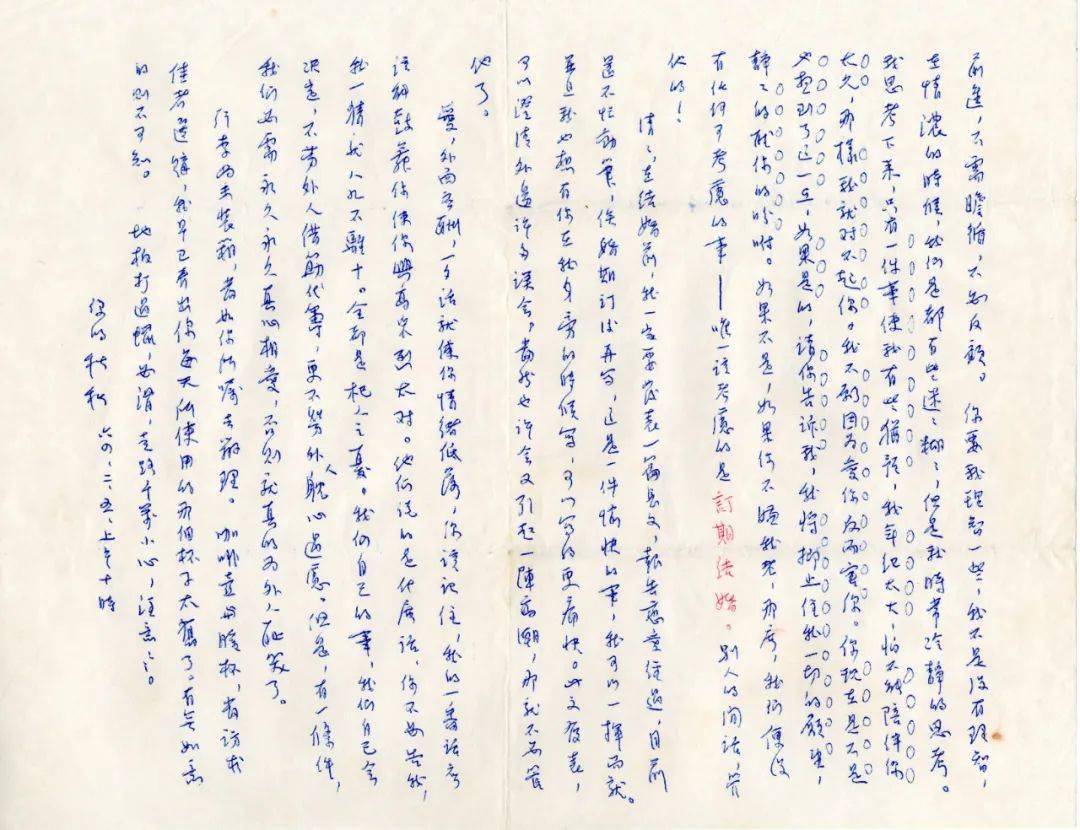 前進，不需瞻循，不必反顧。　你要我理智一些，我不是沒有理智，
在情濃的時候，我们是都有些迷迷糊糊，但是我時常冷靜的思考。
我思考下來，只有一件事使我有些猶豫，我年紀太大，怕不能陪伴你
太久，那樣我就對不起你。我不能因为愛你反而害你。你現在是不是
也想到了這一点，如果是的，請你告訴我，我將擱上住我一切的願望，
靜靜的聽你的吩咐。如果不是，如果你不嫌我老，那麼，我们便沒
有任何可考慮的事——唯一該考慮的是訂期结婚。別人的閒話，管
他的！
清清，在结婚前，我一定要發表一篇長文，報告戀愛经過，目前
還不忙動筆，俟婚期訂後再写，這是一件愉快的事，我可以一揮而就。
並且我也想有你在我身旁的時候写，可以写的更痛快。此文發表，
可以澄清外邊許多誤会，當然也許会又引起一陣高潮，那就不管
他了。
愛，外面应酬，一句話就使你情緒低落，你該記住，我的一番話應
該能鼓舞你使你興高采烈才对。他们说的是什麼話，你不必告我，
我一猜就八九不離十。全都是杞人之憂。我们自己的事，我们自己会
決定，不劳外人借箸代籌，更不勞外人躭心過慮。但是，有一條件，
我们必需永久永久真心相愛，否则就真的为外人耻笑了。
行李尚未裝箱，當如你所囑去辦理。　咖啡壺與膽杯，當訪求
佳者選購，我早已看出你每天所使用的那個杯子太舊了。有無如意
的則不可知。　地板打過蠟，必滑，走路千萬小心，注意注意。
你的秋秋　六四、二、五、上午十時